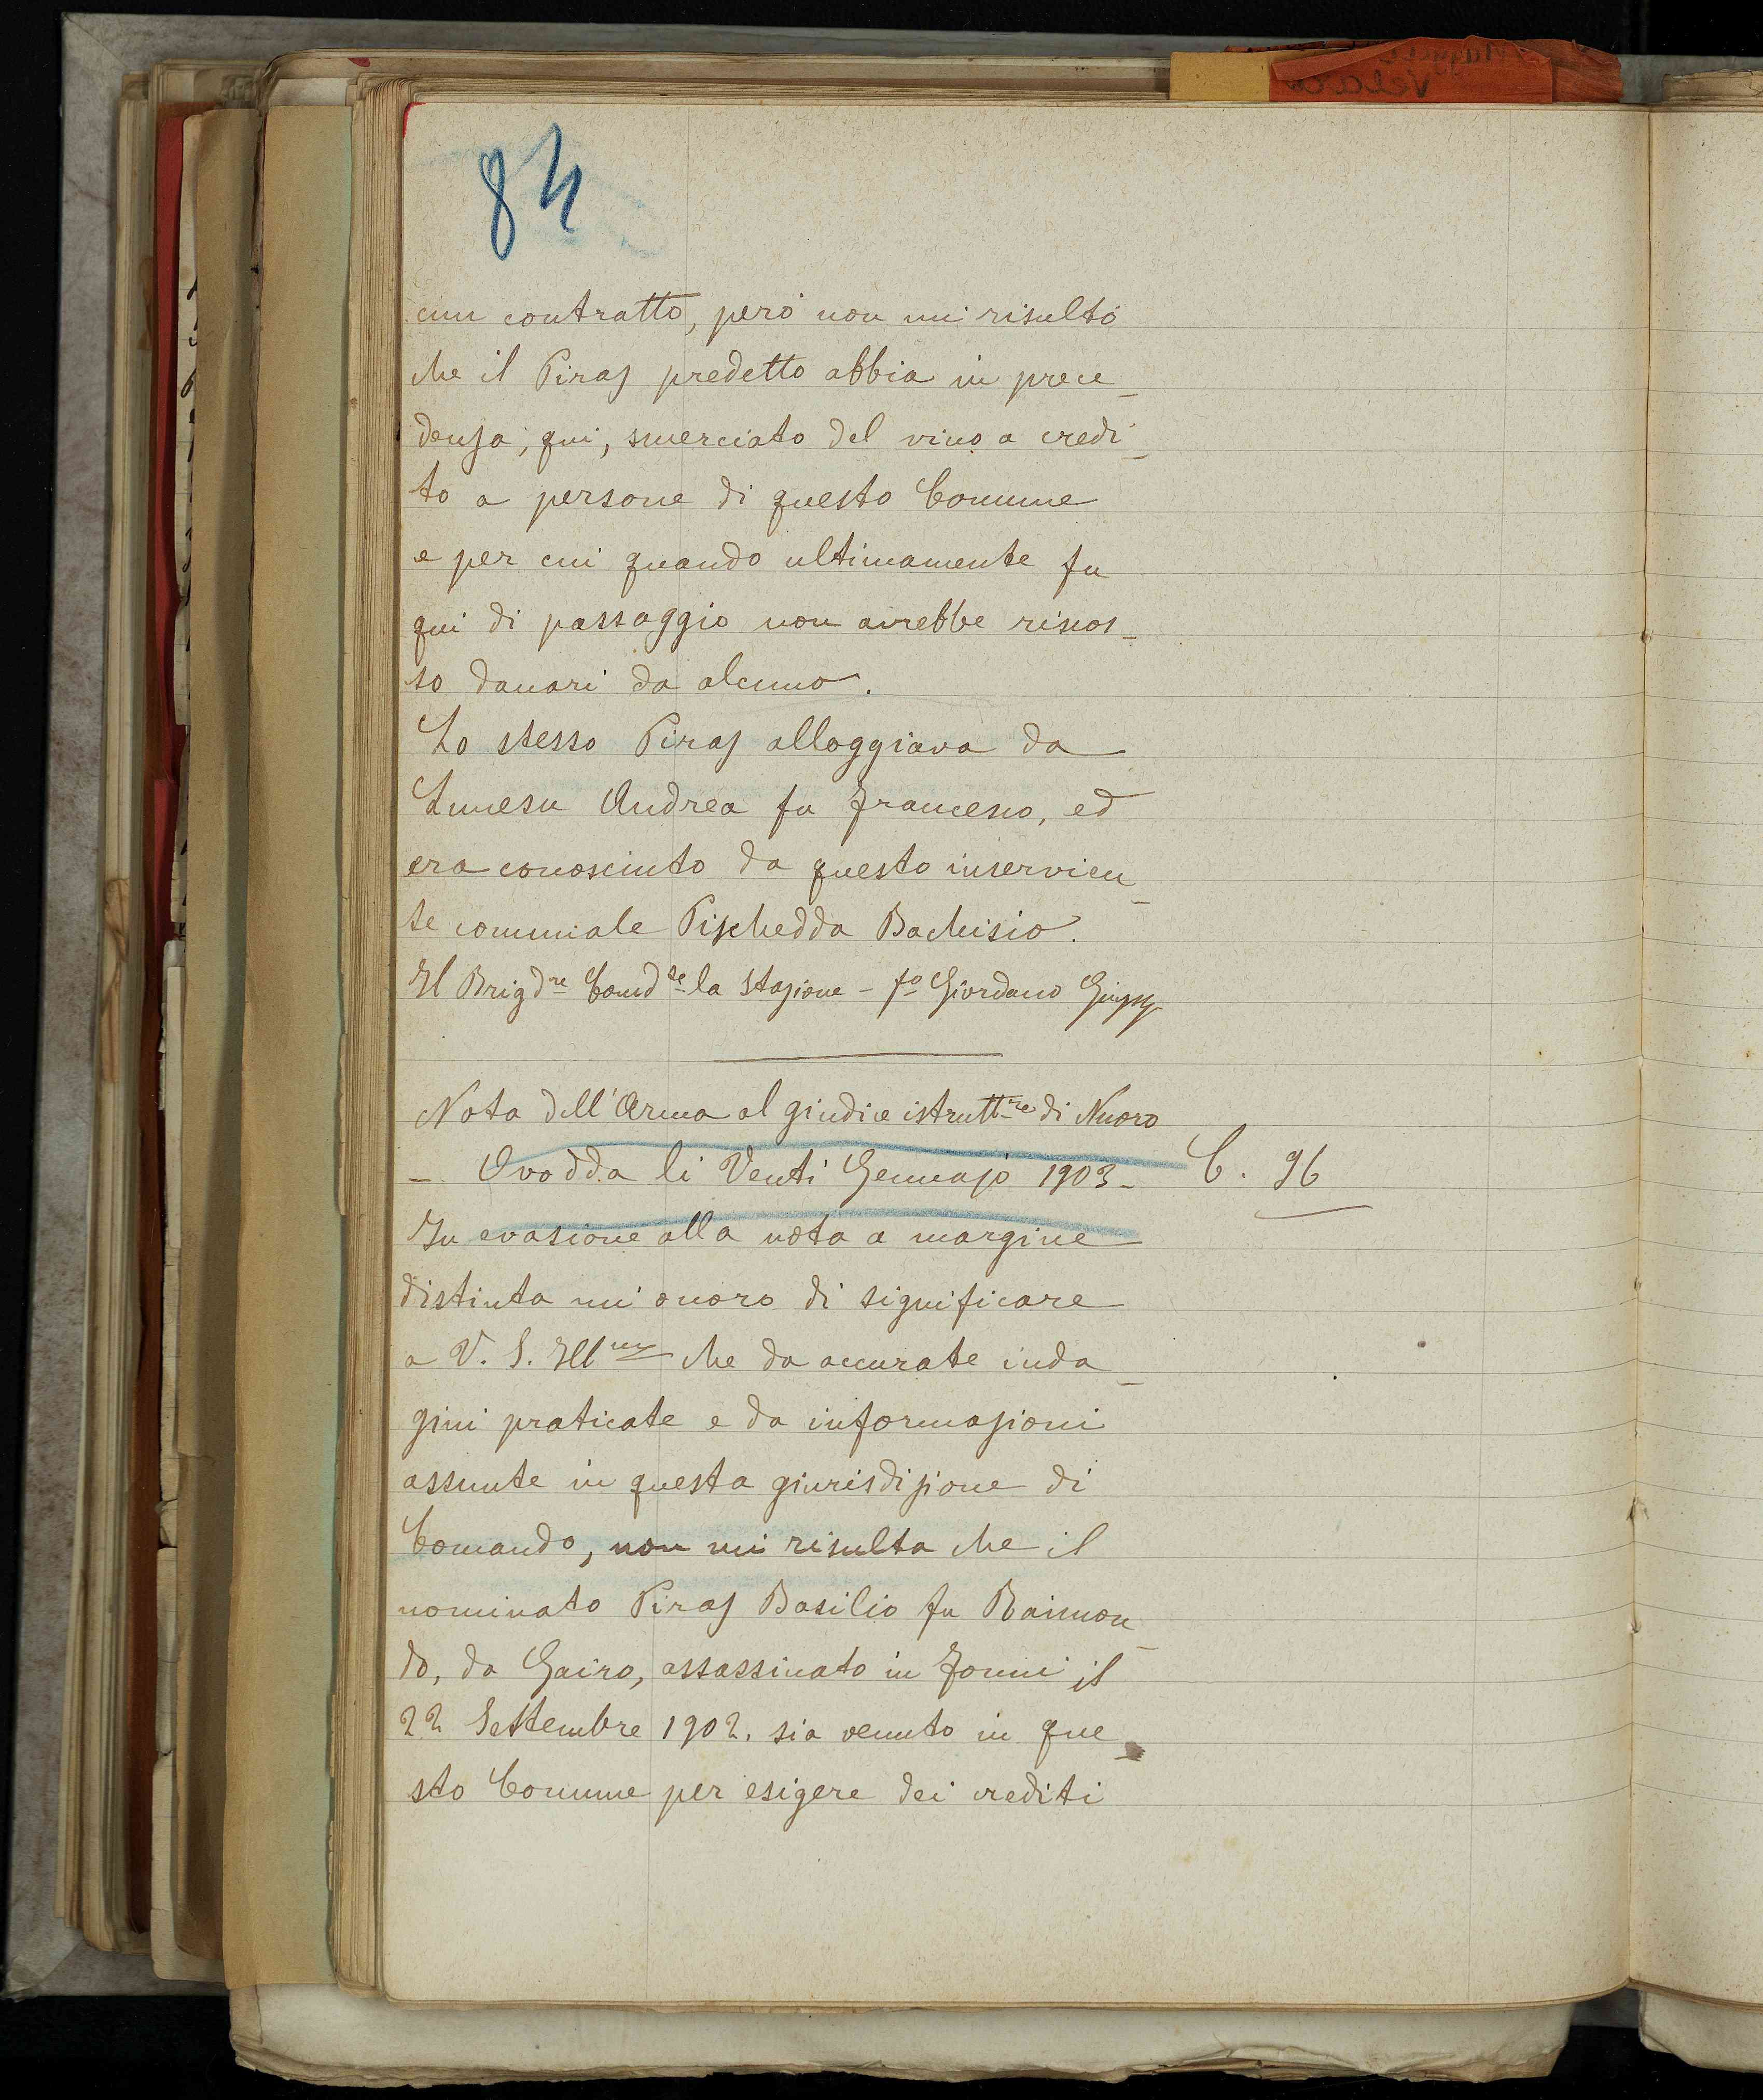 84
cun contratto, però non mi risultò
che il Piras predetto abbia in prece_
denza, qui, smerciato del vino a credi_
to a persone di questo Comune
e per cui quando ultimamente fu
qui di passaggio non avrebbe riscos_
so danari da alcuno.
Lo stesso Piras alloggiava da
Andrea fu Francesco, ed
era conosciuto da questo inservien_
te comunale Pischedda Bachisio.
Il Brigdre Comdte la Stazione - fo Giordano
Nota dell'Arma al giudice istruttre di Nuoro
- Ovodda li Venti Gennajo 1903 - C. 96
In evasione alla nota a margine
distinta mi onoro di significare
a V. S. Illma che da accurate inda_
gini praticate e da informazioni
assunte in questa giurisdizione di
Comando, non mi risulta che il
nominato Piras Basilio fu Raimon_
do, da Gairo, assassinato in Fonni il
22 Settembre 1902. sia venuto in que_
sto Comune per esigere dei crediti